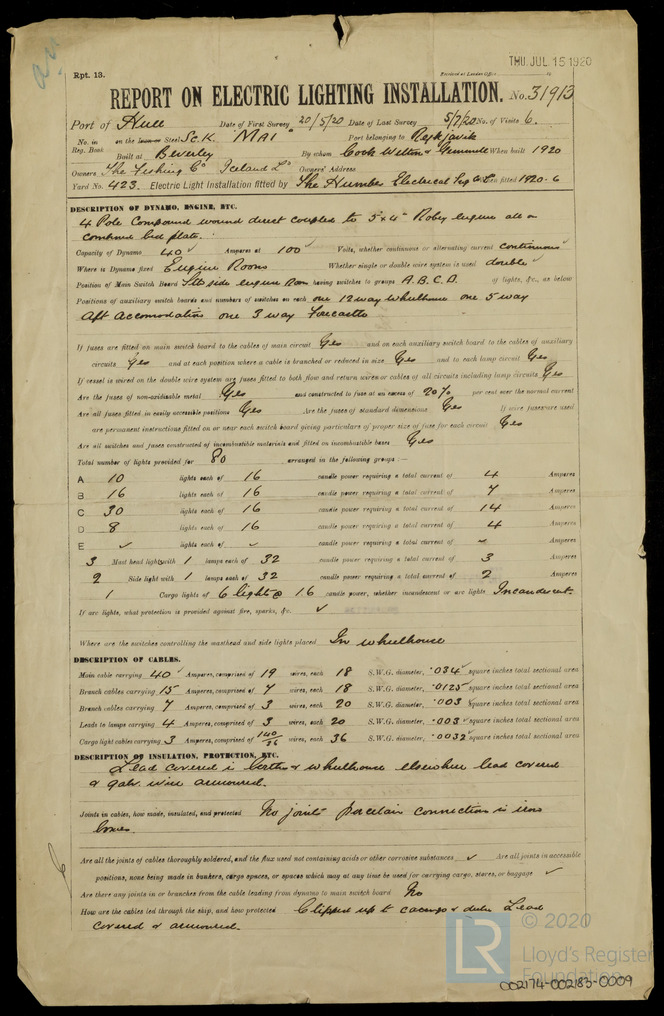 THU. JUL 15 1920
Rpt. 13.
Received at London Office
REPORT ON ELECTRIC LIGHTING INSTALLATION. No. 31913
Port of Hull Date of First Survey 20/5/20 Date of Last Survey 5/7/20 No. of Visits 6.
No. in Reg. Book on the Iron or Steel Sc. K. "MAI" Port belonging to Reykjavik
Built at Beverley By whom Cook Welton & Gemmell When built 1920
Owners The Fishing Co Iceland Ld Owners' Address
Yard No. 423. Electric Light Installation fitted by The Humber Electrical Eng Co Ld When fitted 1920-6
DESCRIPTION OF DYNAMO, ENGINE, ETC.
4 Pole Compound wound direct coupled to 5"x4" Robey engine all on
combined bed plate.
Capacity of Dynamo 40 Amperes at 100 Volts, whether continuous or alternating current continuous
Where is Dynamo fixed Engine Room Whether single or double wire system is used double
Position of Main Switch Board side engine room having switches to groups A.B.C.D. of lights, &c., as below
Positions of auxiliary switch boards and numbers of switches on each one 12 way wheelhouse one 5 way
Aft Accomodation one 3 way Forecastle
If fuses are fitted on main switch board to the cables of main circuit Yes and on each auxiliary switch board to the cables of auxiliary
circuits Yes and at each position where a cable is branched or reduced in size Yes and to each lamp circuit Yes
If vessel is wired on the double wire system are fuses fitted to both flow and return wires or cables of all circuits including lamp circuits Yes
Are the fuses of non-oxidisable metal Yes and constructed to fuse at an excess of 20% per cent over the normal current
Are all fuses fitted in easily accessible positions Yes Are the fuses of standard dimensions Yes If wire fuses are used
are permanent instructions fitted on or near each switch board giving particulars of proper size of fuse for each circuit Yes
Are all switches and fuses constructed of incombustible materials and fitted on incombustible bases Yes
Total number of lights provided for 80 arranged in the following groups :—
A 10 lights each of 16 candle power requiring a total current of 4 Amperes
B 16 lights each of 16 candle power requiring a total current of 7 Amperes
C 30 lights each of 16 candle power requiring a total current of 14 Amperes
D 8 lights each of 16 candle power requiring a total current of 4 Amperes
E ✓ lights each of ✓ candle power requiring a total current of ✓ Amperes
3 Mast head light with 1 lamps each of 32 candle power requiring a total current of 3 Amperes
2 Side light with 1 lamps each of 32 candle power requiring a total current of 2 Amperes
1 Cargo lights of 6 lights @ 16 candle power, whether incandescent or arc lights Incandescent
If arc lights, what protection is provided against fire, sparks, &c. ✓
Where are the switches controlling the masthead and side lights placed In wheelhouse
DESCRIPTION OF CABLES.
Main cable carrying 40 Amperes, comprised of 19 wires, each 18 S.W.G. diameter, .034 square inches total sectional area
Branch cables carrying 15 Amperes, comprised of 7 wires, each 18 S.W.G. diameter, .0125 square inches total sectional area
Branch cables carrying 7 Amperes, comprised of 3 wires, each 20 S.W.G. diameter, .003 square inches total sectional area
Leads to lamps carrying 4 Amperes, comprised of 3 wires, each 20 S.W.G. diameter, .003 square inches total sectional area
Cargo light cables carrying 3 Amperes, comprised of 140/36 wires, each 36 S.W.G. diameter, .0032 square inches total sectional area
DESCRIPTION OF INSULATION, PROTECTION, ETC.
Lead covered in berths & wheelhouse elsewhere lead covered
& galv. wire armoured.
Joints in cables, how made, insulated, and protected No joints porcelain connections in iron
boxes.
Are all the joints of cables thoroughly soldered, and the flux used not containing acids or other corrosive substances ✓ Are all joints in accessible
positions, none being made in bunkers, cargo spaces, or spaces which may at any time be used for carrying cargo, stores, or baggage ✓
Are there any joints in or branches from the cable leading from dynamo to main switch board No
How are the cables led through the ship, and how protected Clipped up to & Lead
covered & armoured.
LR © 2020
Lloyd's Register
Foundation
002174-002183-0009